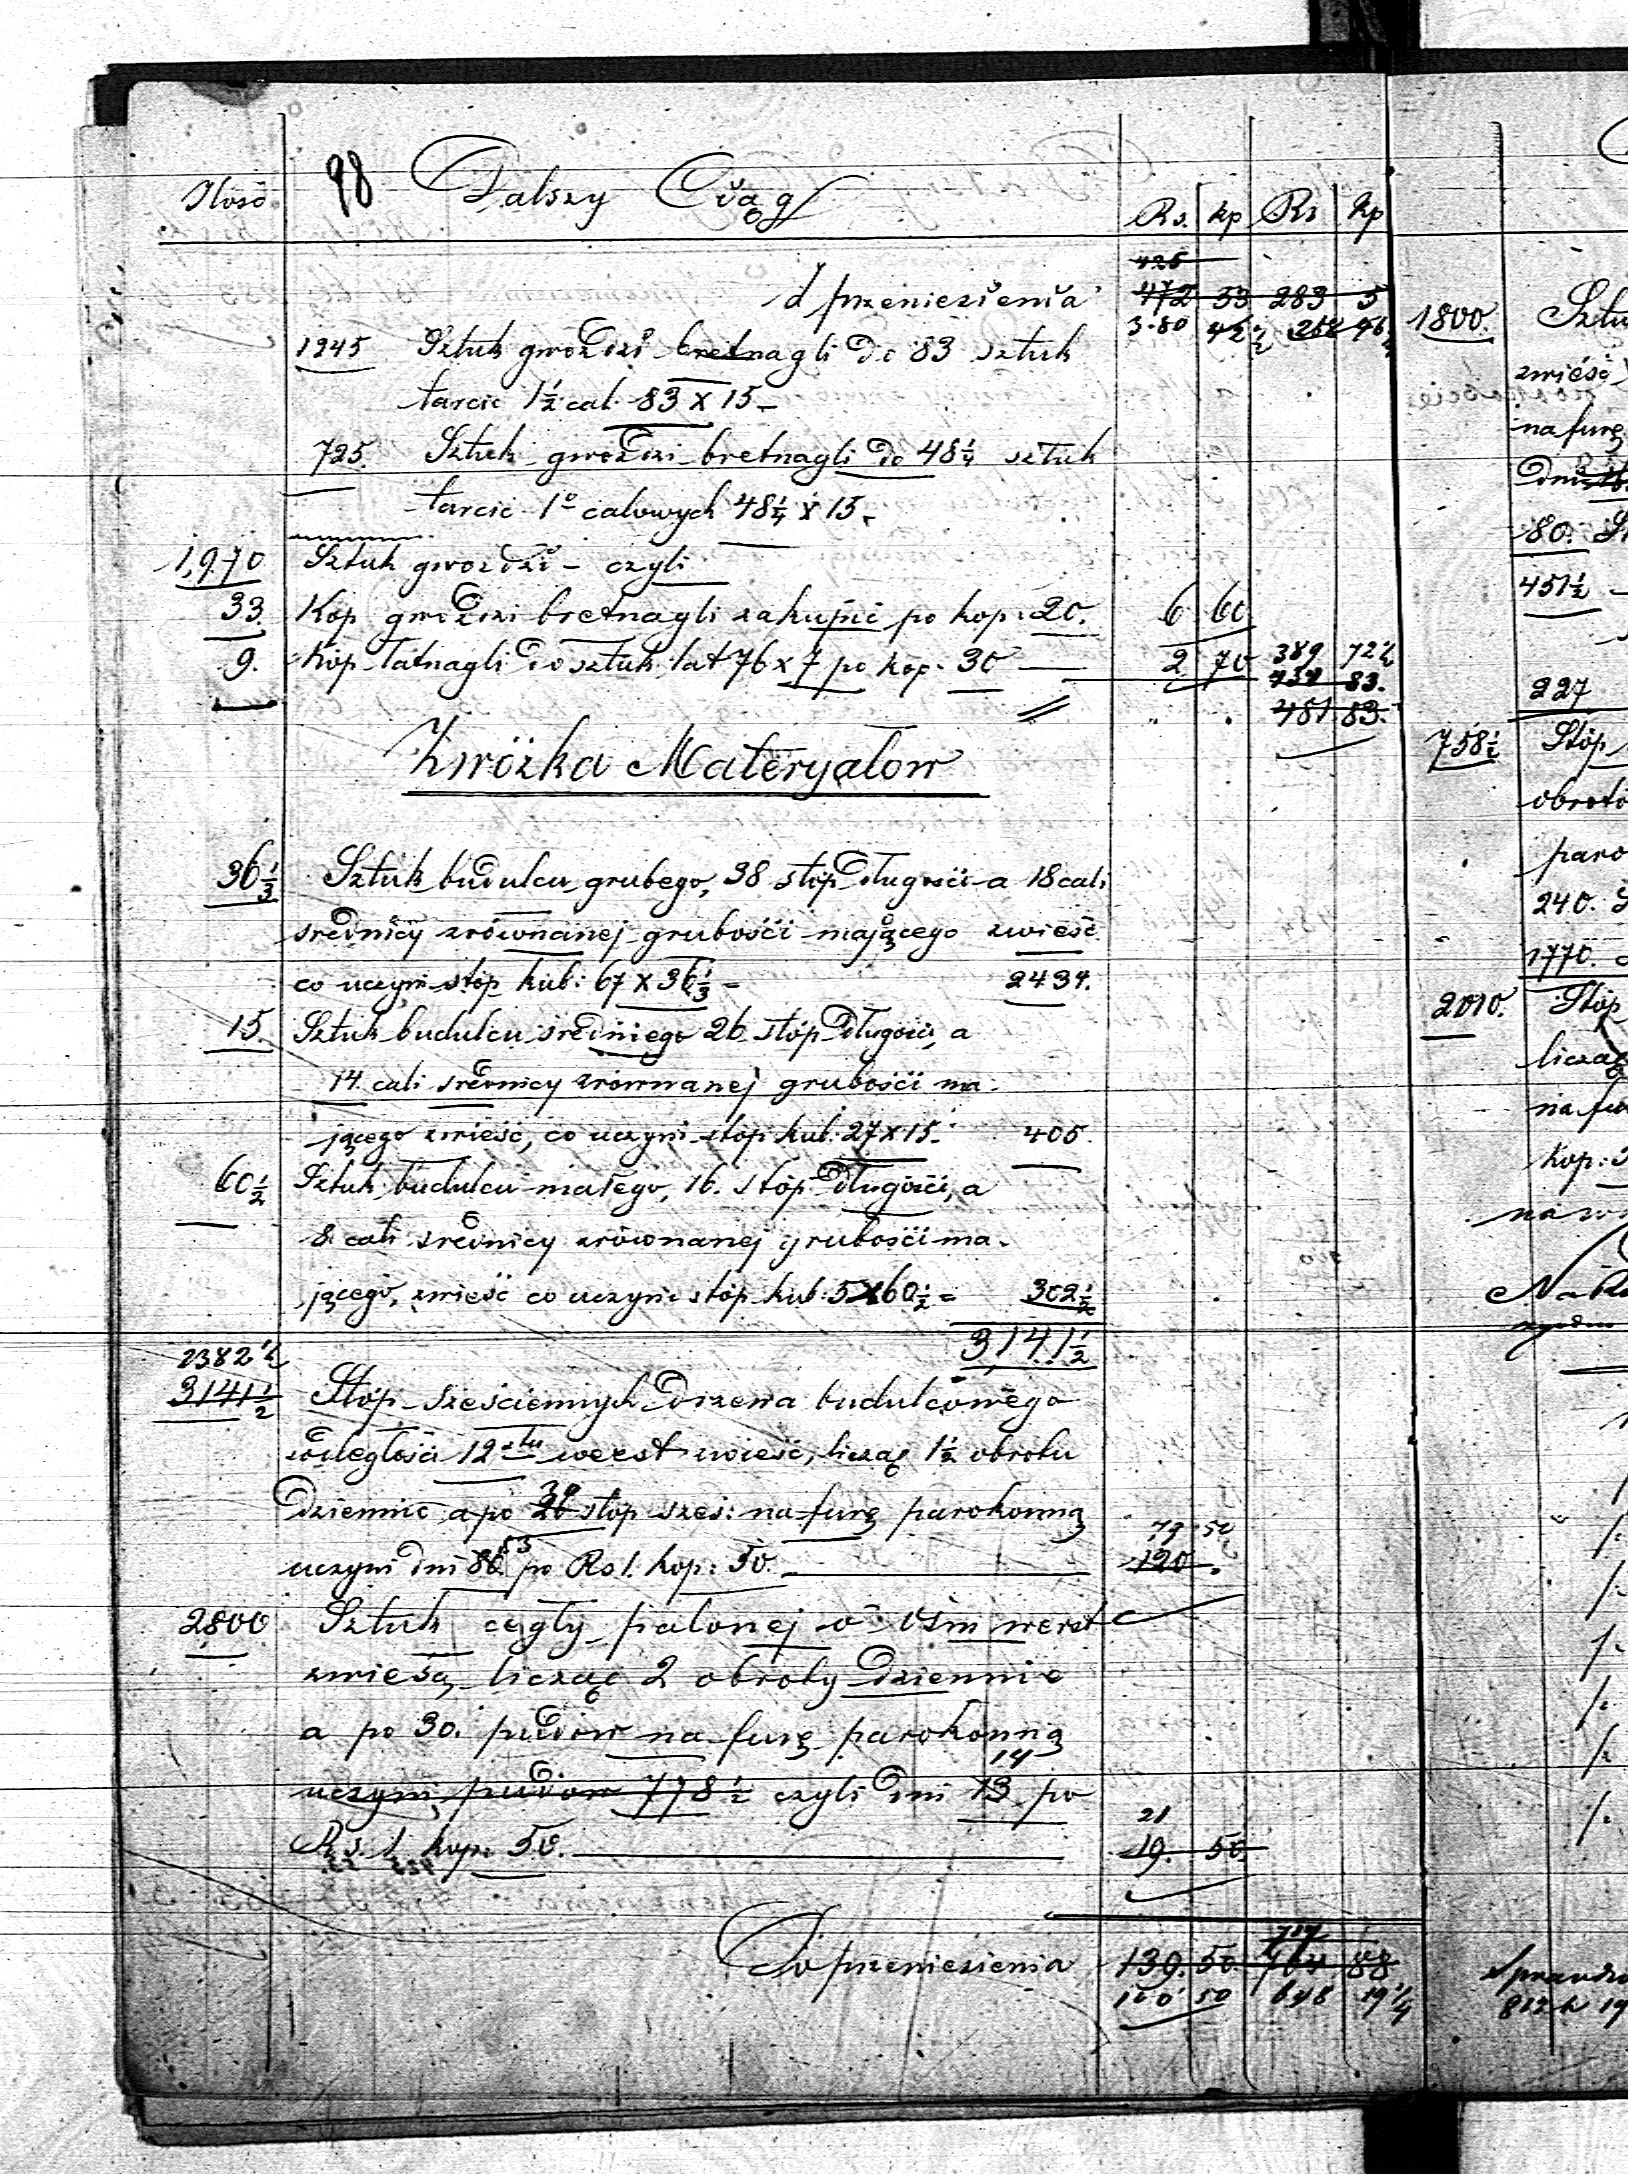 98 Dalszy Ciąg
Ilość Rs. kp Rs kp
425
d przeniesienia 472 53 283 5
3.80 42 1/2 258 46
1245 Sztuk gwoździ bretnagli do 83 sztuk
tarcic 1 1/2 cal. 83 x 15 -
725. Sztuk gwoździ bretnagli do 48 1/4 sztuk
tarcic 1° calowych 48 1/4 x 15.
1,970 Sztuk gwoździ - czyli
33. Kop gwoździ bretnagli zakupić po kop: 20. 6 60
9. Kop łatnagli do sztuk łat 76 x 7 po kop. 30 2 70 389 72 1/2
83.
451. 83.
Zwózka Materyałow
36 1/3 Sztuk budulcu grubego, 38 stóp długości a 18 cali
srednicy zrównanej grubości mającego zwieść
co uczyni stóp kub: 67 x 36 1/3 - 2434.
15. Sztuk budulcu średniego 26 stóp długości, a
14 cali srednicy zrównanej grubości ma-
jącego zwieść, co uczyni stóp kub. 27 x 15. 405.
60 1/2 Sztuk budulcu małego, 16. stóp długości, a
8 cali srednicy zrównanej grubości ma-
jącego, zwieść co uczyni stóp kub: 5 x 60 1/2 = 302 1/2
3141 1/2
2382 1/2
3141 1/2 Stóp sześciennych drzewa budulcowego
odległości 12-tu werst zwieść, licząc 1 1/2 obrotu
30
dziennie a po 26 stóp sześ: na furę parokonną
53 79 50
uczyni dni 80. po Rs 1. kop: 50. 120 .
2800 Sztuk cegły palonej o ośm werst
zwieść, licząc 2 obroty dziennie
a po 30. pudów na furę parokonną
14
uczyni, pudów 778 1/2 czyli dni 13 po
21
Rs. 1 kop: 50. 19. 50.
717
Do przeniesienia 139. 50. 764 88
100 50 648 19 1/4
1800. Sztu
zwieść
na furę
dni
80.
451 1/2
227
758 1/2 Stóp
obrotó
paro
240.
1770.
2010. Stóp
licząc
na fu
Kop: